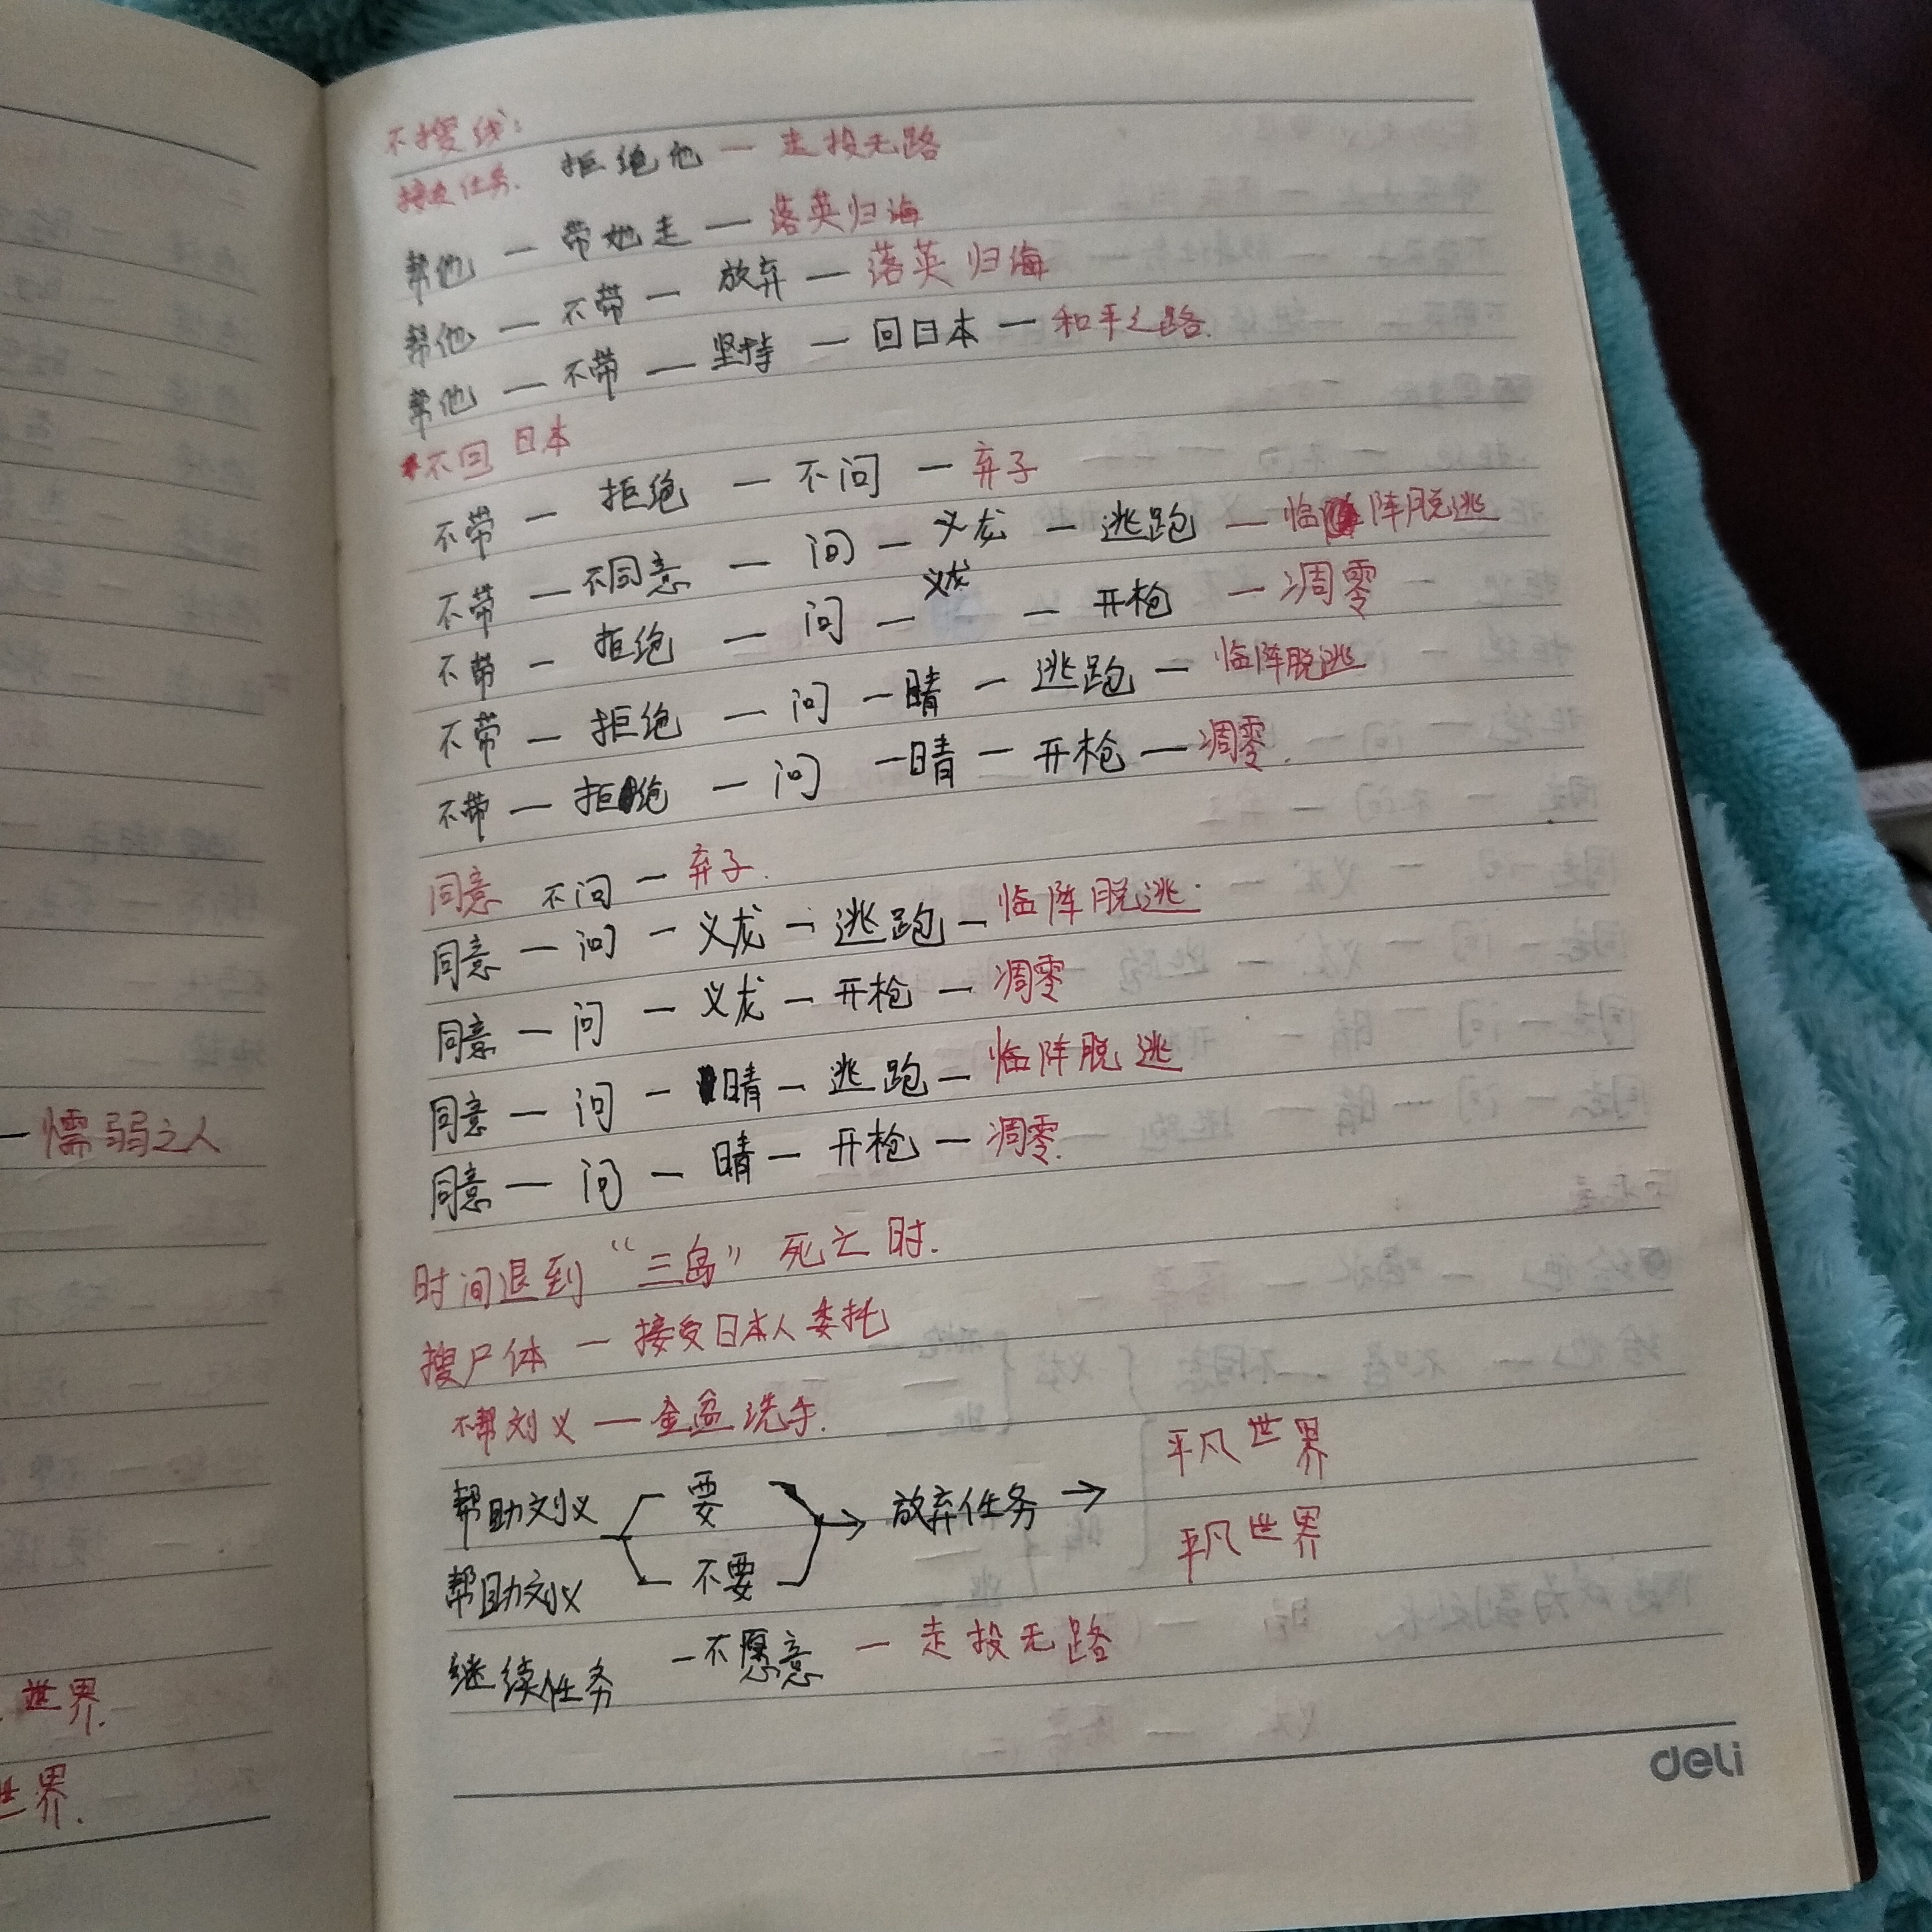 不搜线：
接受任务. 拒绝他 — 走投无路
帮他 — 带她走 — 落英归海
帮他 — 不带 — 放弃 — 落英归海
帮他 — 不带 — 坚持 — 回日本 — 和平之路.
不回日本
不带 — 拒绝 — 不问 — 弃子
不带 — 不同意 — 问 — 义龙 — 逃跑 — 临阵脱逃
不带 — 拒绝 — 问 — 义龙 — 开枪 — 凋零
不带 — 拒绝 — 问 — 晴 — 逃跑 — 临阵脱逃
不带 — 拒绝 — 问 — 晴 — 开枪 — 凋零.
同意 不问 — 弃子.
同意 — 问 — 义龙 — 逃跑 — 临阵脱逃.
同意 — 问 — 义龙 — 开枪 — 凋零
同意 — 问 — 晴 — 逃跑 — 临阵脱逃
同意 — 问 — 晴 — 开枪 — 凋零.
时间退到“三岛”死亡时.
搜尸体 — 接受日本人委托
不帮刘义 — 金盆洗手.
平凡世界
帮助刘义 要 → 放弃任务 →
平凡世界
帮助刘义 不要
继续任务 — 不愿意 — 走投无路
deli
— 懦弱之人
世界.
世界.